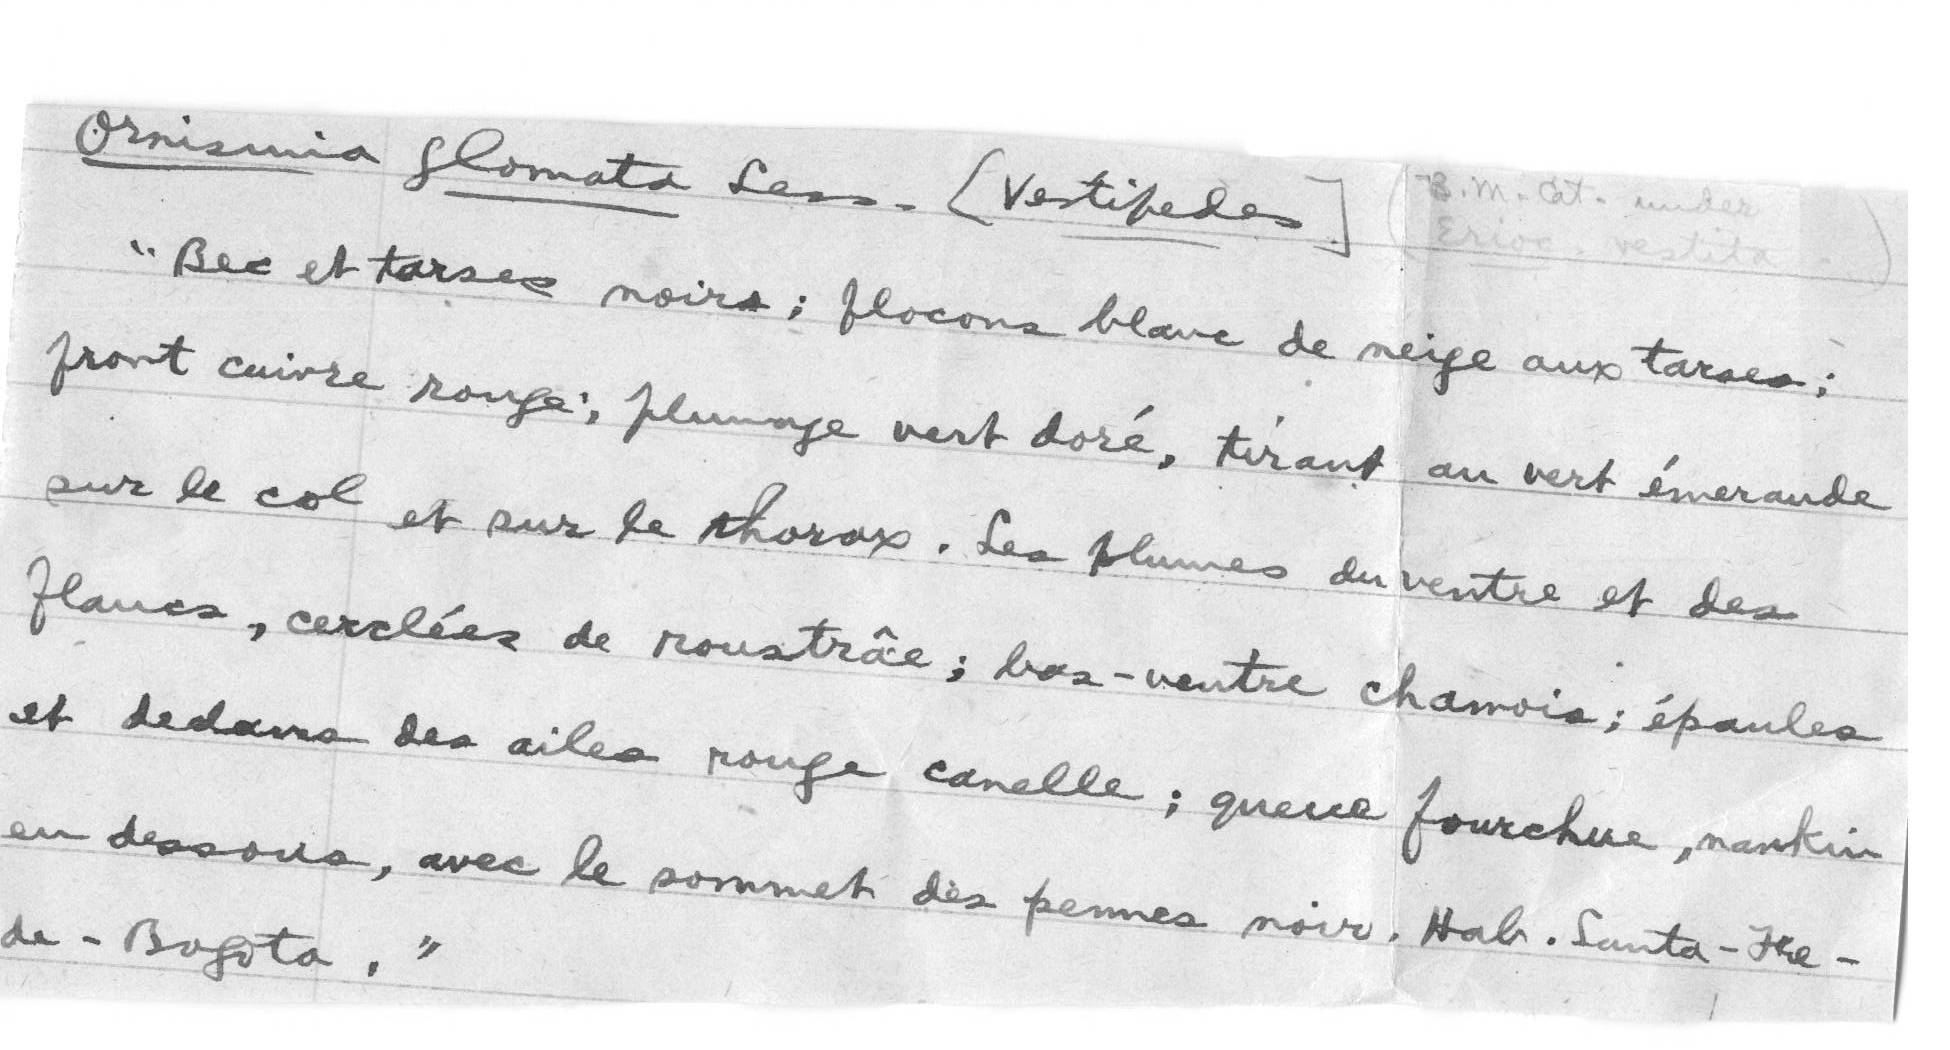 Ornismia glomata Less. [Vestipedes] (B.M. Cat. under
Erioc. vestita.)
"Bec et tarses noirs; flocons blanc de neige aux tarses;
front cuivre rouge; plumage vert doré, tirant au vert émeraude
sur le col et sur le thorax. Les plumes du ventre et des
flancs, cerclées de roustrâe; bas-ventre chamois; épaules
et dedans des ailes rouge canelle; queue fourchue, nankin
en dessous, avec le sommet des pennes noir. Hab. Santa-Fe-
de-Bogota."